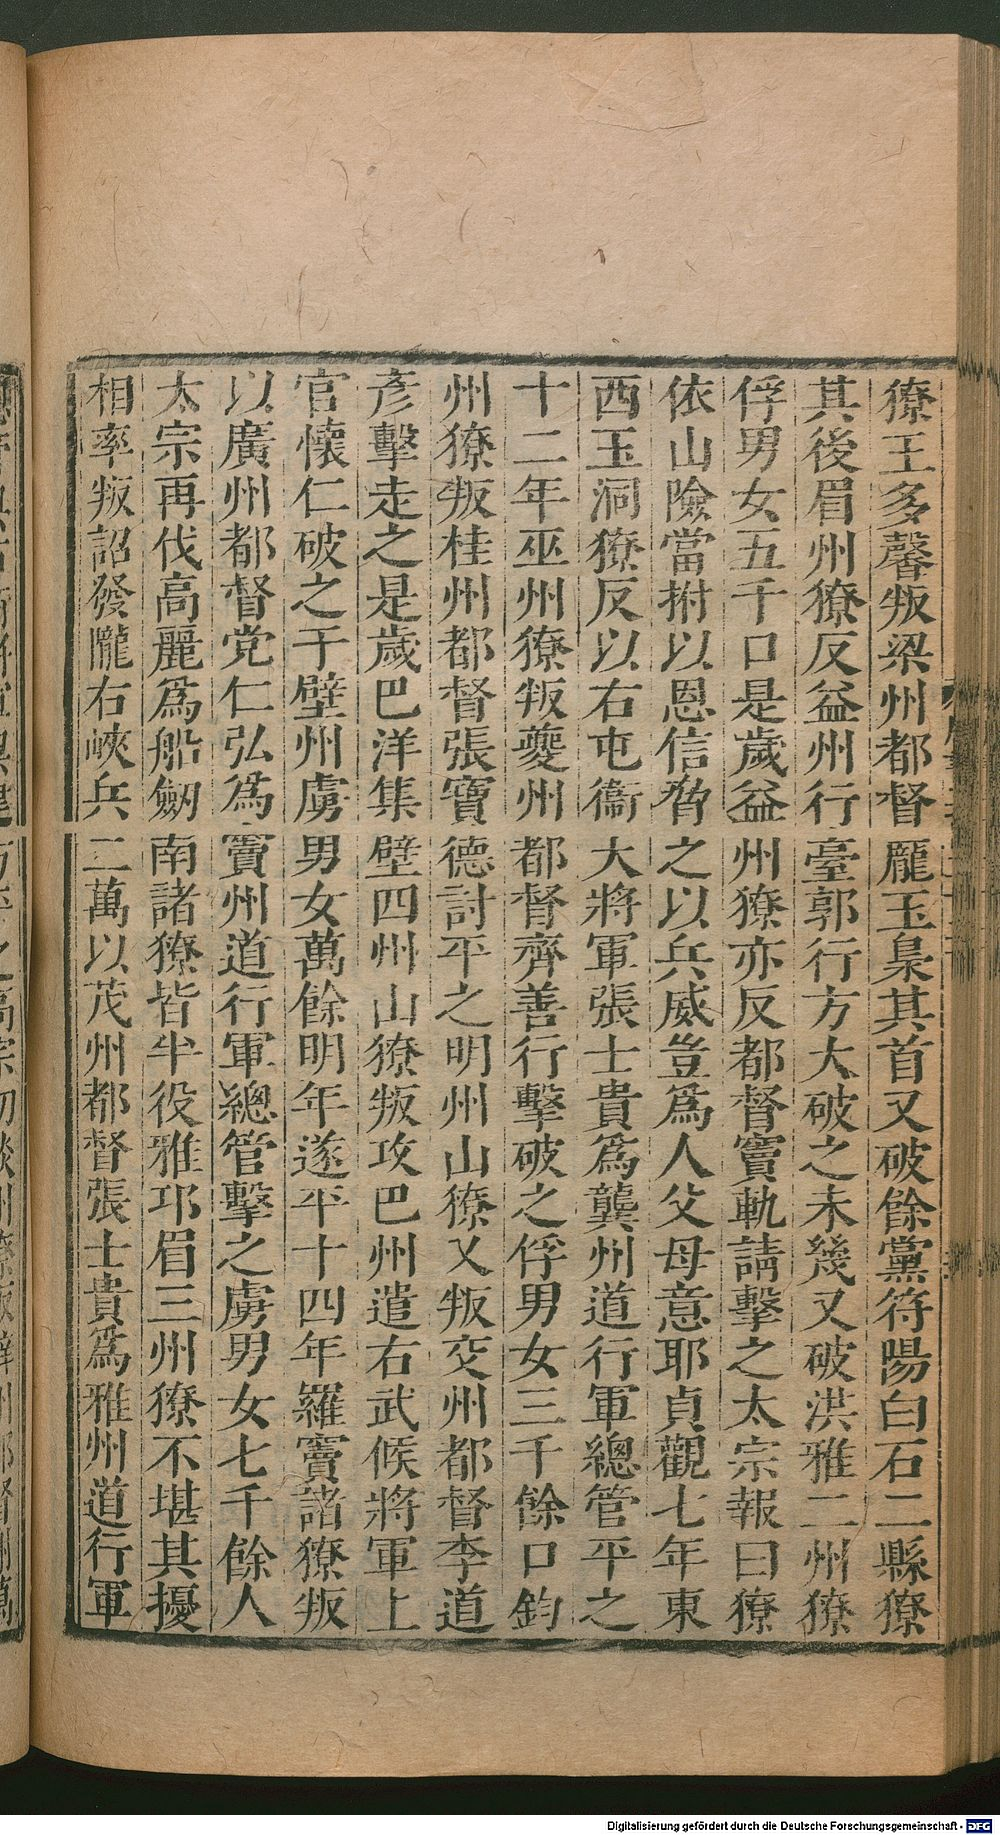 獠王多馨叛梁州都督龐玉梟其首又破餘黨符陽白石二縣獠
其後眉州獠反益州行臺郭行方大破之未幾又破洪雅二州獠
俘男女五千口是歲益州獠亦反都督竇軌請擊之太宗報曰獠
依山險當拊以恩信脅之以兵威豈爲人父母意耶貞觀七年東
西玉洞獠反以右屯衞大將軍張士貴爲龔州道行軍總管平之
十二年巫州獠叛夔州都督齊善行擊破之俘男女三千餘口鈞
州獠叛桂州都督張寶德討平之明州山獠又叛交州都督李道
彥擊走之是歲巴洋集壁四州山獠叛攻巴州遣右武候將軍上
官懷仁破之于壁州虜男女萬餘明年遂平十四年羅竇諸獠叛
以廣州都督党仁弘爲竇州道行軍總管擊之虜男女七千餘人
太宗再伐高麗爲船劒南諸獠皆半役雅邛眉三州獠不堪其擾
相率叛詔發隴右峽兵二萬以茂州都督張士貴爲雅州道行軍
Digitalisierung gefördert durch die Deutsche Forschungsgemeinschaft - DFG